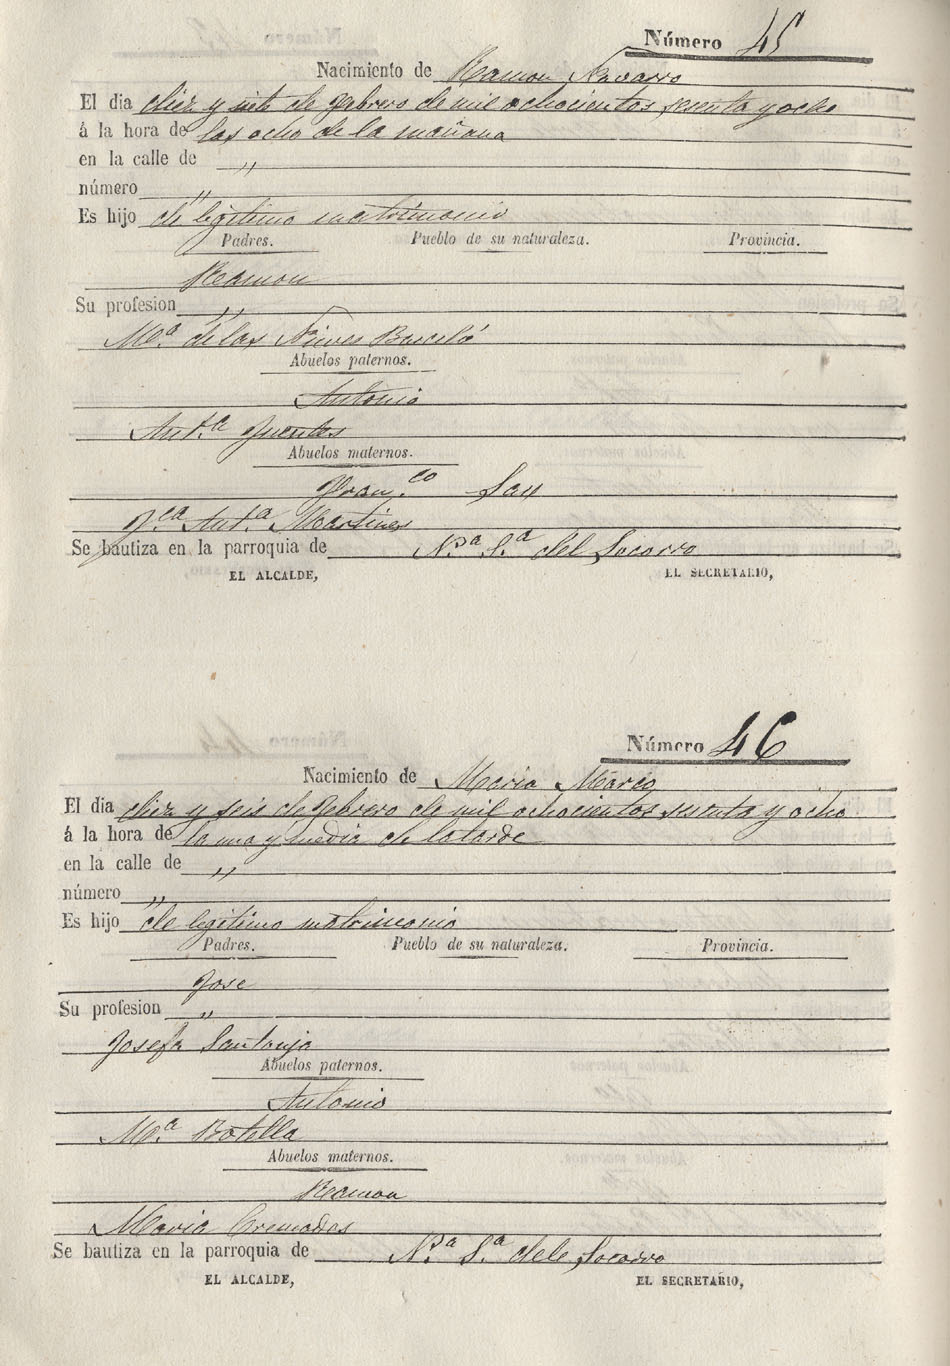 Número 45
Nacimiento de Ramon Navarro
El dia diez y siete de Febrero de mil ochocientos sesenta y ocho
á la hora de las ocho de la mañana
en la calle de "
número "
Es hijo de legitimo matrimonio
Padres. Pueblo de su naturaleza. Provincia.
Ramon
Su profesion "
Mª. de las Nieves Barceló
Abuelos paternos.
Antonio
Ant.ª Fuentes
Abuelos maternos.
Fran.co
F.ca Ant.ª Martines
Se bautiza en la parroquia de N.ª S.ª del Socorro
EL ALCALDE, EL SECRETARIO,
Número 46
Nacimiento de Maria Marco
El dia diez y seis de Febrero de mil ochocientos sesenta y ocho
á la hora de la una y media de la tarde
en la calle de "
número "
Es hijo de legitimo matrimonio
Padres. Pueblo de su naturaleza. Provincia.
Jose
Su profesion "
Josefa Santonja
Abuelos paternos.
Antonio
Mª. Botella
Abuelos maternos.
Ramon
Maria Cremades
Se bautiza en la parroquia de N.ª S.ª dele Socorro
EL ALCALDE, EL SECRETARIO,